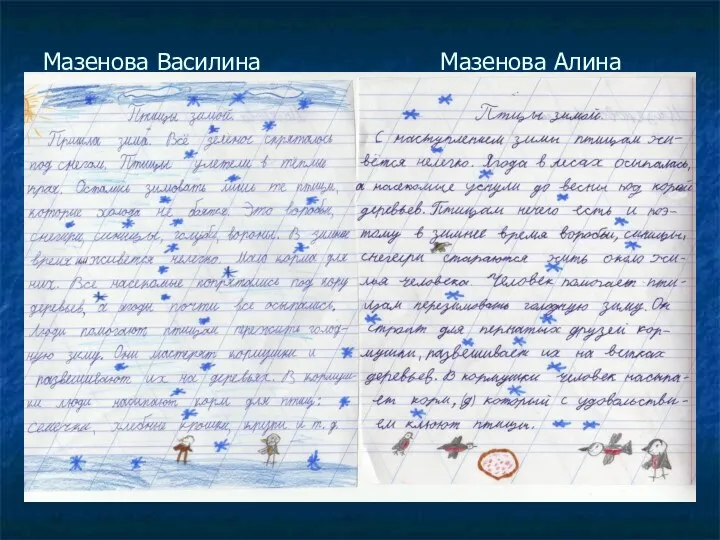 Мазенова Василина
Птицы зимой.
Пришла зима. Всё зеленое спряталось
под снегом. Птицы улетели в теплые
края. Остались зимовать лишь те птицы,
которые холода не боятся. Это воробьи,
снегири, синицы, голуби, вороны. В зимнее
время им живётся нелегко. Мало корма для
них. Все насекомые попрятались под кору
деревьев, а ягоды почти все осыпались.
Люди помогают птицам пережить голод-
ную зиму. Они мастерят кормушки и
развешивают их на деревьях. В кормуш-
ки люди насыпают корм для птиц:
семечки, хлебные крошки, крупы и т.д
Мазенова Алина
Птицы зимой.
С наступлением зимы птицам жи-
вётся нелегко. Ягода в лесах осыпалась,
а насекомые уснули до весны под корой
деревьев. Птицам нечего есть и поэ-
тому в зимнее время воробьи, синицы,
снегири стараются жить около жи-
лья человека. Человек помогает пти-
цам перезимовать голодную зиму. Он
строит для пернатых друзей кор-
мушки, развешивает их на ветках
деревьев. В кормушки человек насыпа-
ет корм, который с удовольстви-
ем клюют птицы.